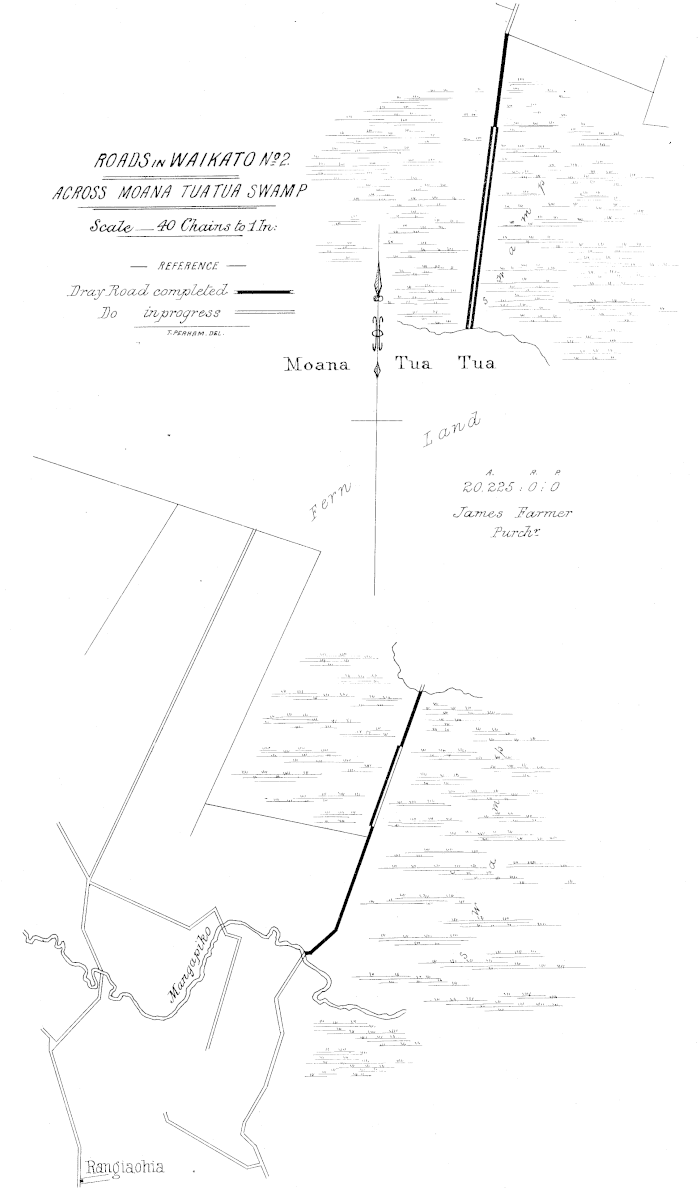 ROADS IN WAIKATO No. 2.
ACROSS MOANA TUATUA SWAMP
Scale — 40 Chains to 1 In:
— REFERENCE —
Dray Road completed
Do in progress
T. PERHAM. DEL.
Swamp
Moana Tua Tua
Fern Land
A. R. P
20.225 : 0 : 0
James Farmer
Purchr.
Swamp
Mangapiko
Rangiaohia